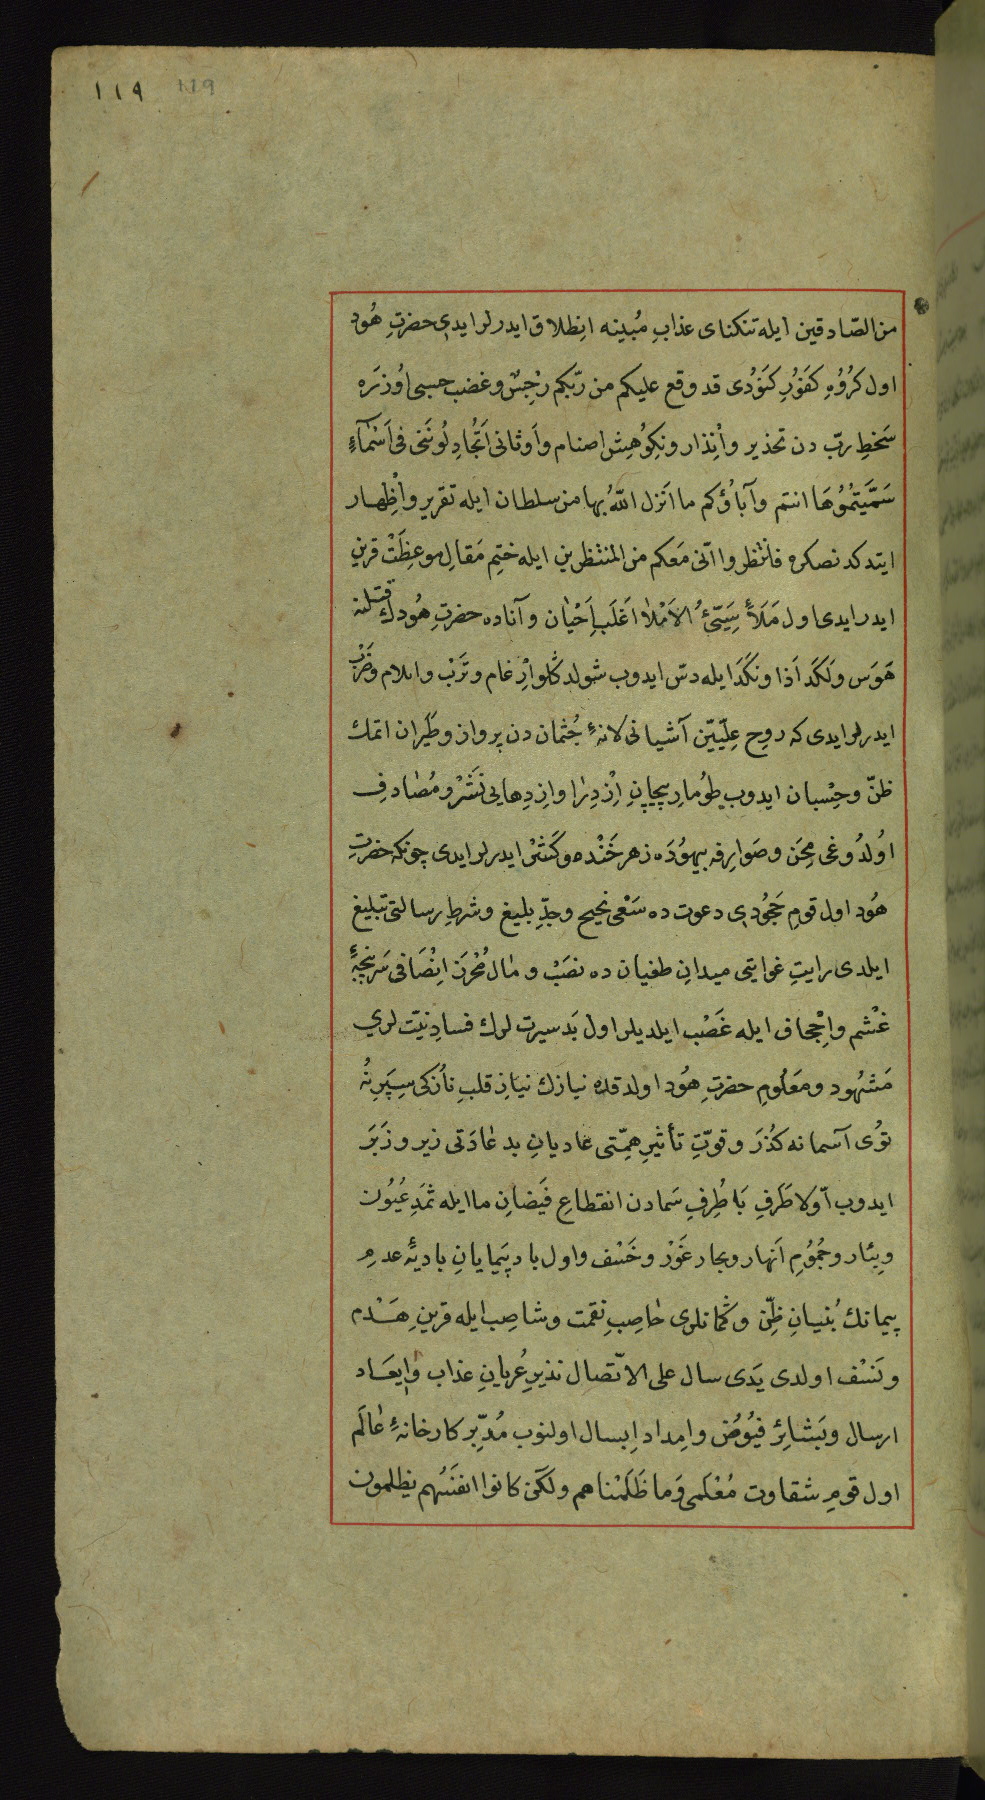 ١١٩ 119
من الصّادقين ايله تنكناى عذابِ مُبينه انِطلاق ايدرلر ايدى حضرتِ هُود
اول كرُوُهِ كفَوُرِ كنَوُدى قد وقع عليكم من ربّكم رْجِسٌ وغضب حسبى اوُزَره
سَخطِ ربّ دن تحذير واِنْذار ونكِوُهِشِ اصنام واَوثانى اَتُجادِلُونَنى فى اَسْمآءٍ
سَمَّيَتمُوُهَا انتم وآباؤكم ما اَنزل اللّهُ بها من سلطان ايله تقرير واِظِهار
ايتدكدنصكره فانتْظروا انّى مَعكم من المنتْظرين ايله ختِم مَقالِ موعِظَتْ قرين
ايدر ايدى اول مَلَأَ سِيَّئُ الاَمْلاَ اغَلَبِ اَحْيٰان وآناده حضرتِ هُودك قتلنه
هَوَس ولَكَد اَذا ونكَدَ ايله دسّ ايدوب شولدكلو اِرْغام وتَرْب وايلام وضَرْب
ايدرلر ايدى كه روحِ علِّيّين آشيانى لانۀ جُثمان دن پرواز وطَيَران اتمك
ظنّ وحِسْبان ايدوب طوُمارِ پيچانِ اِزْدِرٰا وازِدِهايى نَشَرْ ومُصٰادفِ
اوُلدوُغى مِحَن وصَوارِفه بيهوُدَه زهرخَنْده وكَشَرْ ايدرلر ايدى چونكه حضرتِ
هُود اول قومِ جَحُودى دعوت ده سَعْىِ نجيح وجدِّ بليغ وشرطِ رسالتى تبليغ
ايلدى رايتِ غوايتى ميدانِ طغيان ده نصَبْ ومٰال مُخْزَنِ اِنْصَافى سَرپنجۀِ
غْشم واِجْحاف ايله غَصْب ايلديلر اول بَد سيرت لرك فسادِ نيّت لرى
مَشْهُود ومَعَلُومِ حضرتِ هُود اولدقده نيازك نيازِ قلبِ نٰازكى سِپَرِ نُه
توُى آسمانه كذَر وقوّتِ تأثيرِ همِّتى عاديانِ بد عٰادَتى زير وزَبَرَ
ايدوب اوّلا طَرَفِ بَا طُرِفِ سَمادن انقطاعِ فَيَضانِ ما ايله ثمَدِ عُيُون
وبِئار وجُمُومِ اَنهار وبحار غَوْر وخَسْف واول بادپَيمايانِ باديۀ عدمِ
پيمانك بُنيانِ ظِنّ وكمانلرى حٰاصِبِ نقمت وشاصِب ايله قرينِ هَدْم
ونَسْف اولدى يَدى سال على الاتّصال نذيرِ عُريانِ عذاب واِيعَاد
ارسال وبَشائِرْ فيُوُضِ وامِداد اِبسال اولنوب مُدبِّر كارخانۀِ عٰالَم
اول قومِ شقاوت مُعْلَمى وَما ظَلَمْناهم ولكَن كانوا انفَسُهم يظلمون